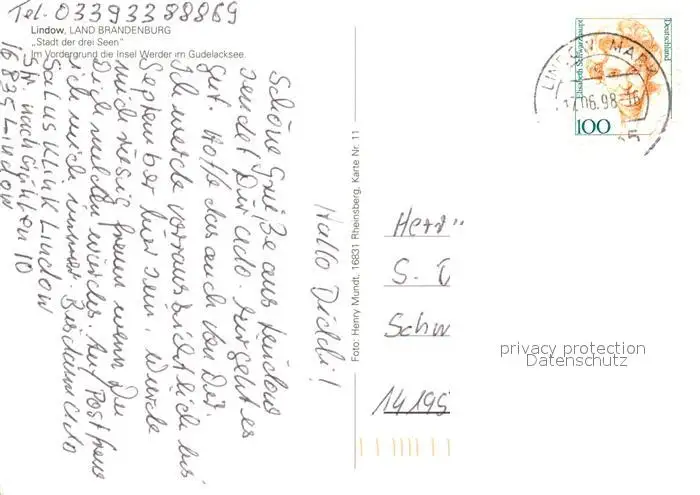 Tel. 03393388869
Lindow, LAND BRANDENBURG
„Stadt der drei Seen"
Im Vordergrund die Insel Werder im Gudelacksee.
Hallo Diddi!
Schöne Grüße aus Lindow
sendet Dir Udo. Mir geht es
gut. Hoffe das auch von Dir
Ich werde vorraussichtlich bis
September hier sein. Würde
mich riesig freuen wenn Du
Dich melden würdest. Auf Post freue
ich mich immer. Bis dann Udo
Salus Klinik Lindow
Str. nach Gühlen 10
16835 Lindow
Foto: Henry Mundt, 16831 Rheinsberg, Karte Nr. 11
Elisabeth Schwarzhaupt
Deutschland
100
LINDOW, MARK
06.98-16
Herr
S.
Schw
14195
privacy protection
Datenschutz